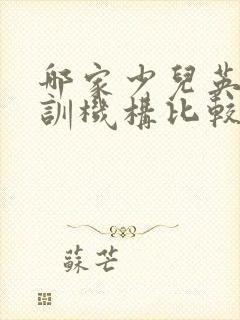 哪家少兒英
訓機構比較
蘇芒